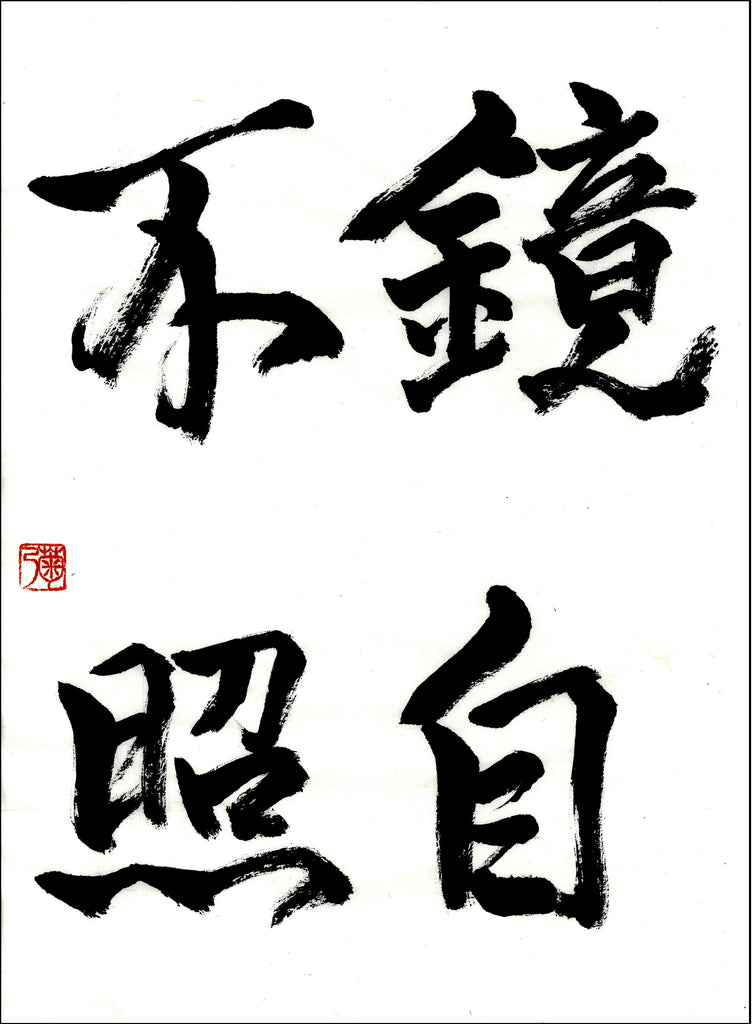 鏡自
不照